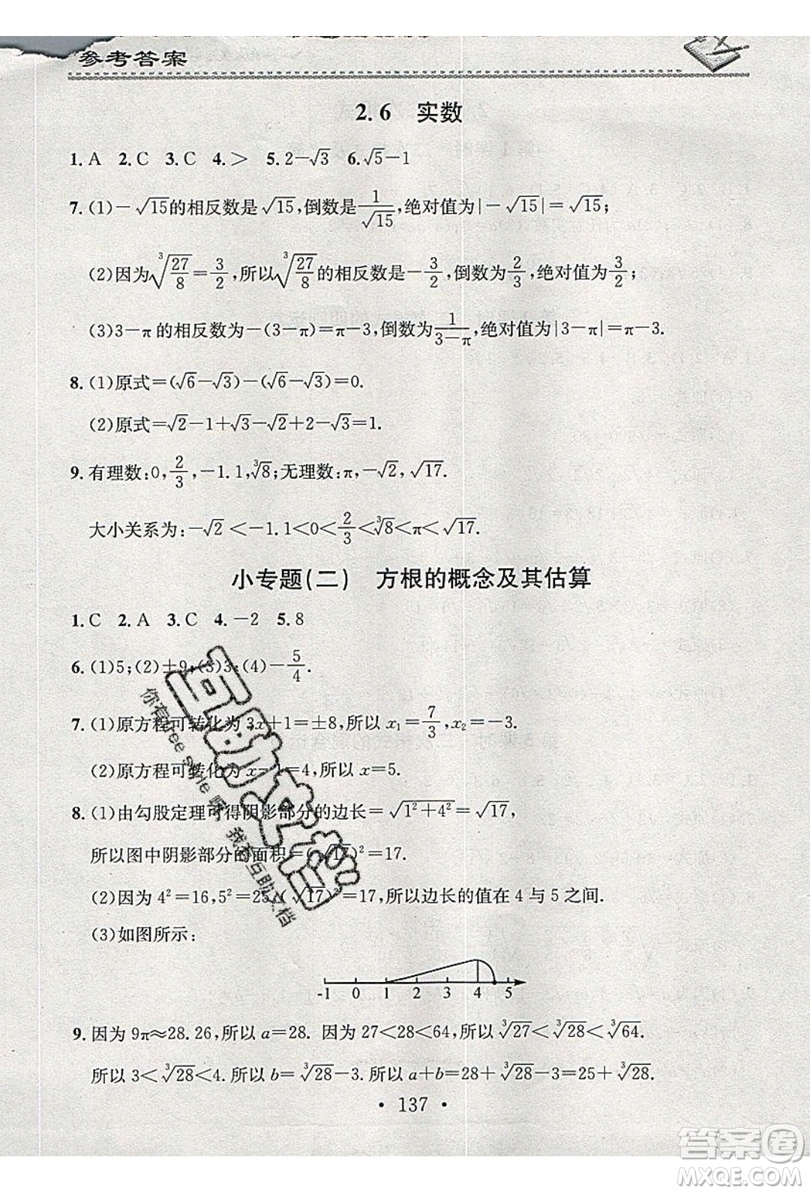 参考答案
2.6 实数
1. A 2. C 3. C 4. > 5. 2-√3 6. √5-1
7. (1)-√15的相反数是√15,倒数是1/√15,绝对值为|-√15|=√15;
(2)因为∛(27/8)=3/2,所以∛(27/8)的相反数是-3/2,倒数为2/3,绝对值为3/2;
(3)3-π的相反数为-(3-π)=π-3,倒数为1/(3-π),绝对值为|3-π|=π-3.
8. (1)原式=(√6-√3)-(√6-√3)=0.
(2)原式=√2-1+√3-√2+2-√3=1.
9. 有理数:0,2/3,-1.1,∛8;无理数:π,-√2,√17.
大小关系为:-√2<-1.1<0<2/3<∛8<π<√17.
小专题(二) 方根的概念及其估算
1. C 2. A 3. C 4. -2 5. 8
6. (1)5;(2)±9;(3)3;(4)-5/4.
7. (1)原方程可转化为3x+1=±8,所以x₁=7/3,x₂=-3.
(2)原方程可转化为x-1=4,所以x=5.
8. (1)由勾股定理可得阴影部分的边长=√(1²+4²)=√17,
所以图中阴影部分的面积=(√17)²=17.
(2)因为4²=16,5²=25,(√17)²=17,所以边长的值在4与5之间.
(3)如图所示:
-1 0 1 2 3 4 5
9. 因为9π≈28.26,所以a=28. 因为27<28<64,所以∛27<∛28<∛64.
所以3<∛28<4. 所以b=∛28-3. 所以a+b=28+∛28-3=25+∛28.
· 137 ·
互助文档
我有互助文档
答案卷
MXQE.COM